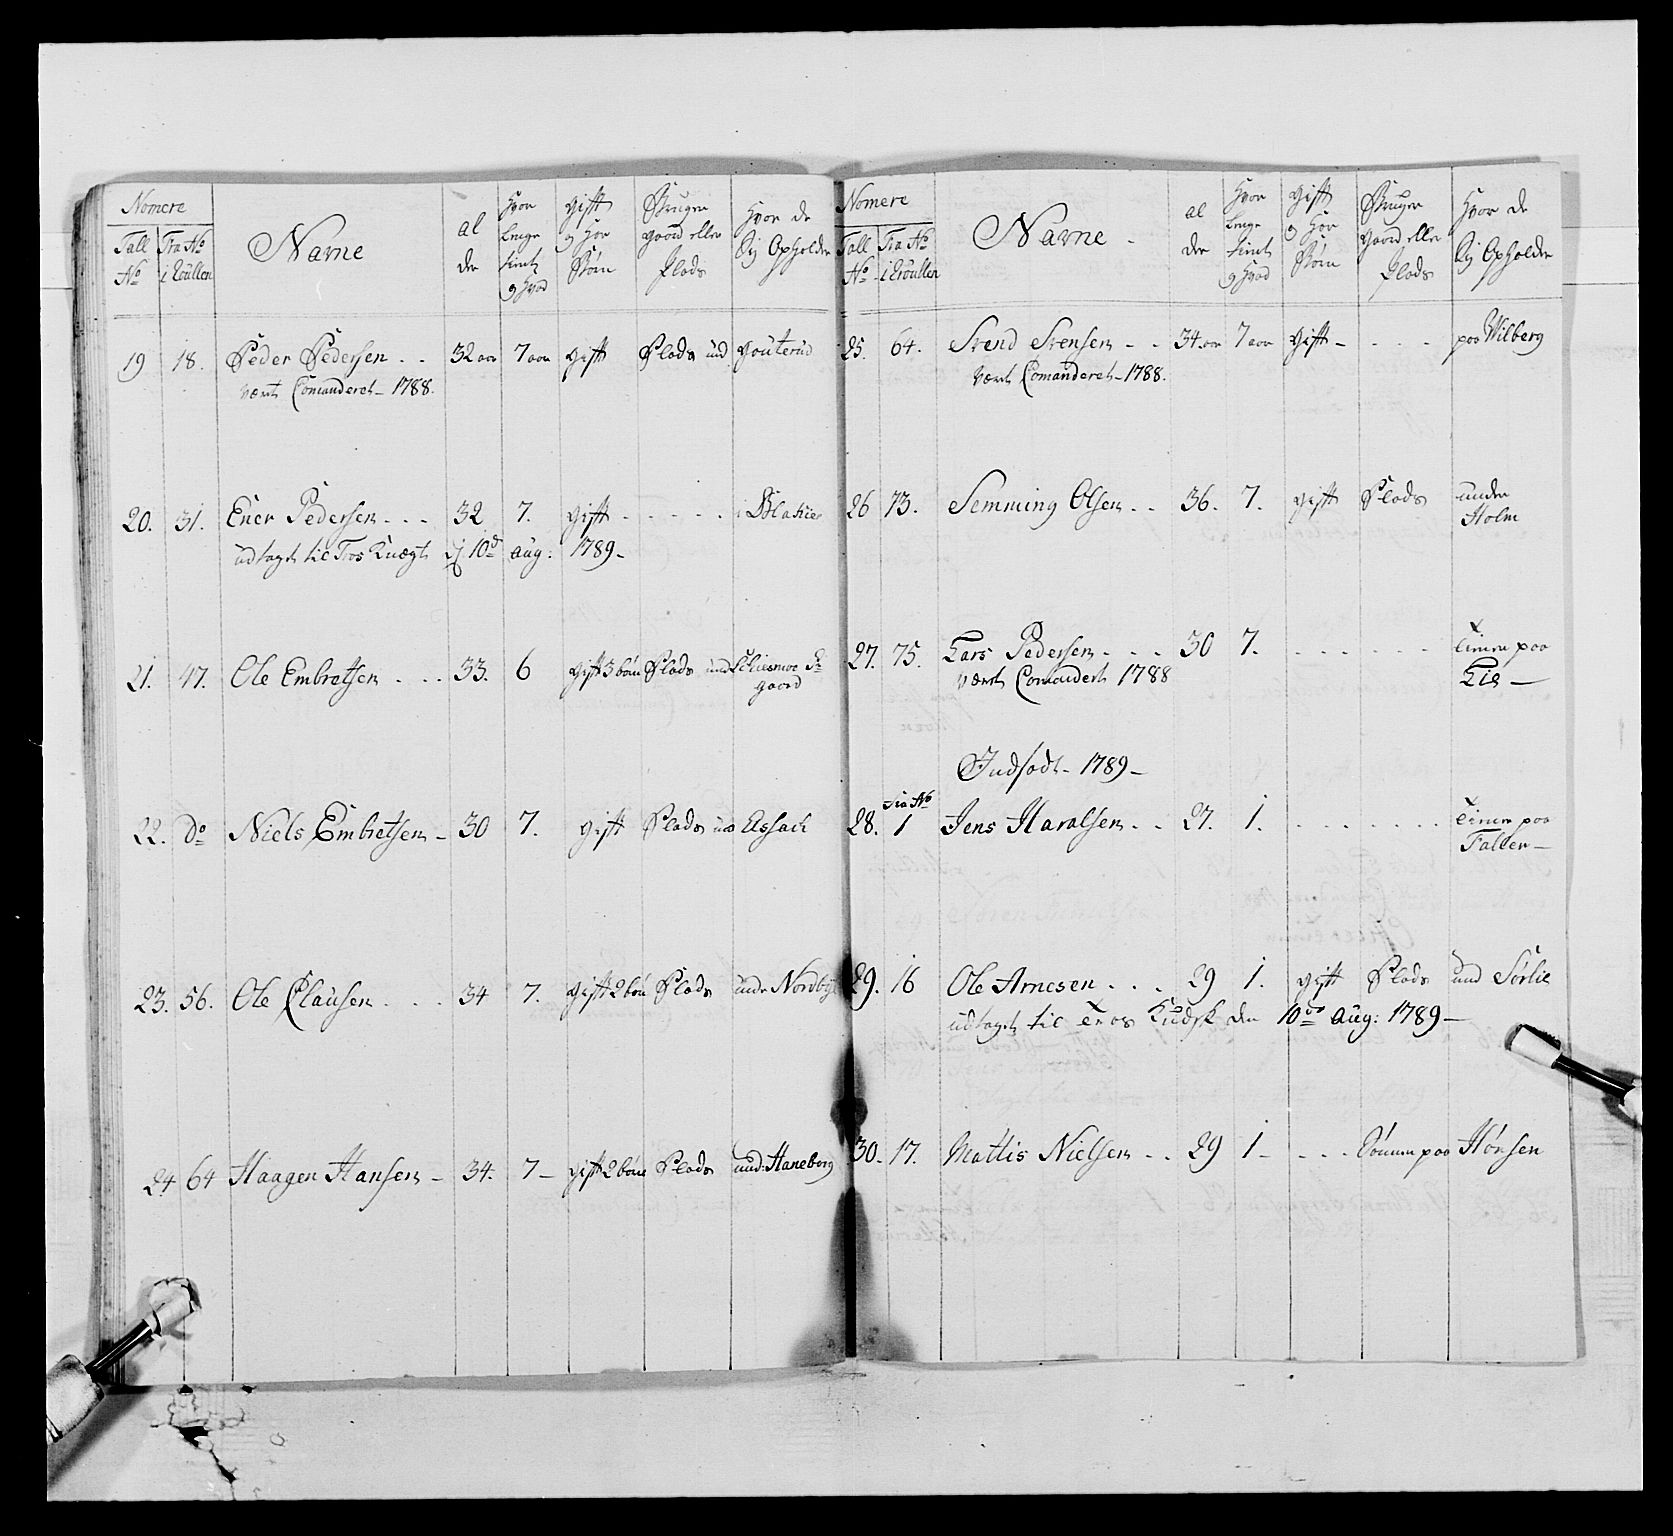 Nomere
Tall No
Fra No i Roullen
Name
al der
Hvor lenge tient og hvad
gift og hvor Børn
Bruger gaard eller Plads
Hvor de sig Opholder
19 18. Peder Pedersen . . 32 aar 7 aar gift Plads und gouterud
vært Comanderet - 1788.
20. 31. Ener Pedersen . . . 32 7. gift . . . . . i Blakier
udtaget til Tros Knægt d 10de aug: 1789 -
21. 47. Ole Embretsen . . . 33. 6 gift 3 børn Plads und
gaard
22. Do Niels Embretsen - 30 7. gift Plads und Assach
23. 56. Ole Clausen . . . 34 7. gift 2 børn Plads under Nordbye
24 64 Haagen Hansen - 34. 7 - gift 2 børn Plads und: Haneborg
Nomere
Tall No
Fra No i Roullen
Name
al der
Hvor lenge tient og hvad
gift og hvor Børn
Bruger gaard eller Plads
Hvor de sig Opholder
25. 64. Svend Svensen . . 34. aar 7 aar gift - . . . paa Wilberg
vært Comanderet - 1788.
26 73. Semming Olsen . . 36. 7. gift Plads under
Holm
27. 75. Lars Pedersen . . . 30 7. . . . . . . tiener paa
Lie -
vært Comandert 1788
Indsadt - 1789 -
Fra No
28. 1 Jens Haralsen . . 27. 1. . . . . . . tiener paa
Faller -
29. 16 Ole Arnesen . . . 29 1. gift Plads und Sørlie
udtaget til Tros Kudsk den 10de aug: 1789 -
30. 17. Mattis Nielsen . . 29 1 - . . . Sønnen paa Hønsen